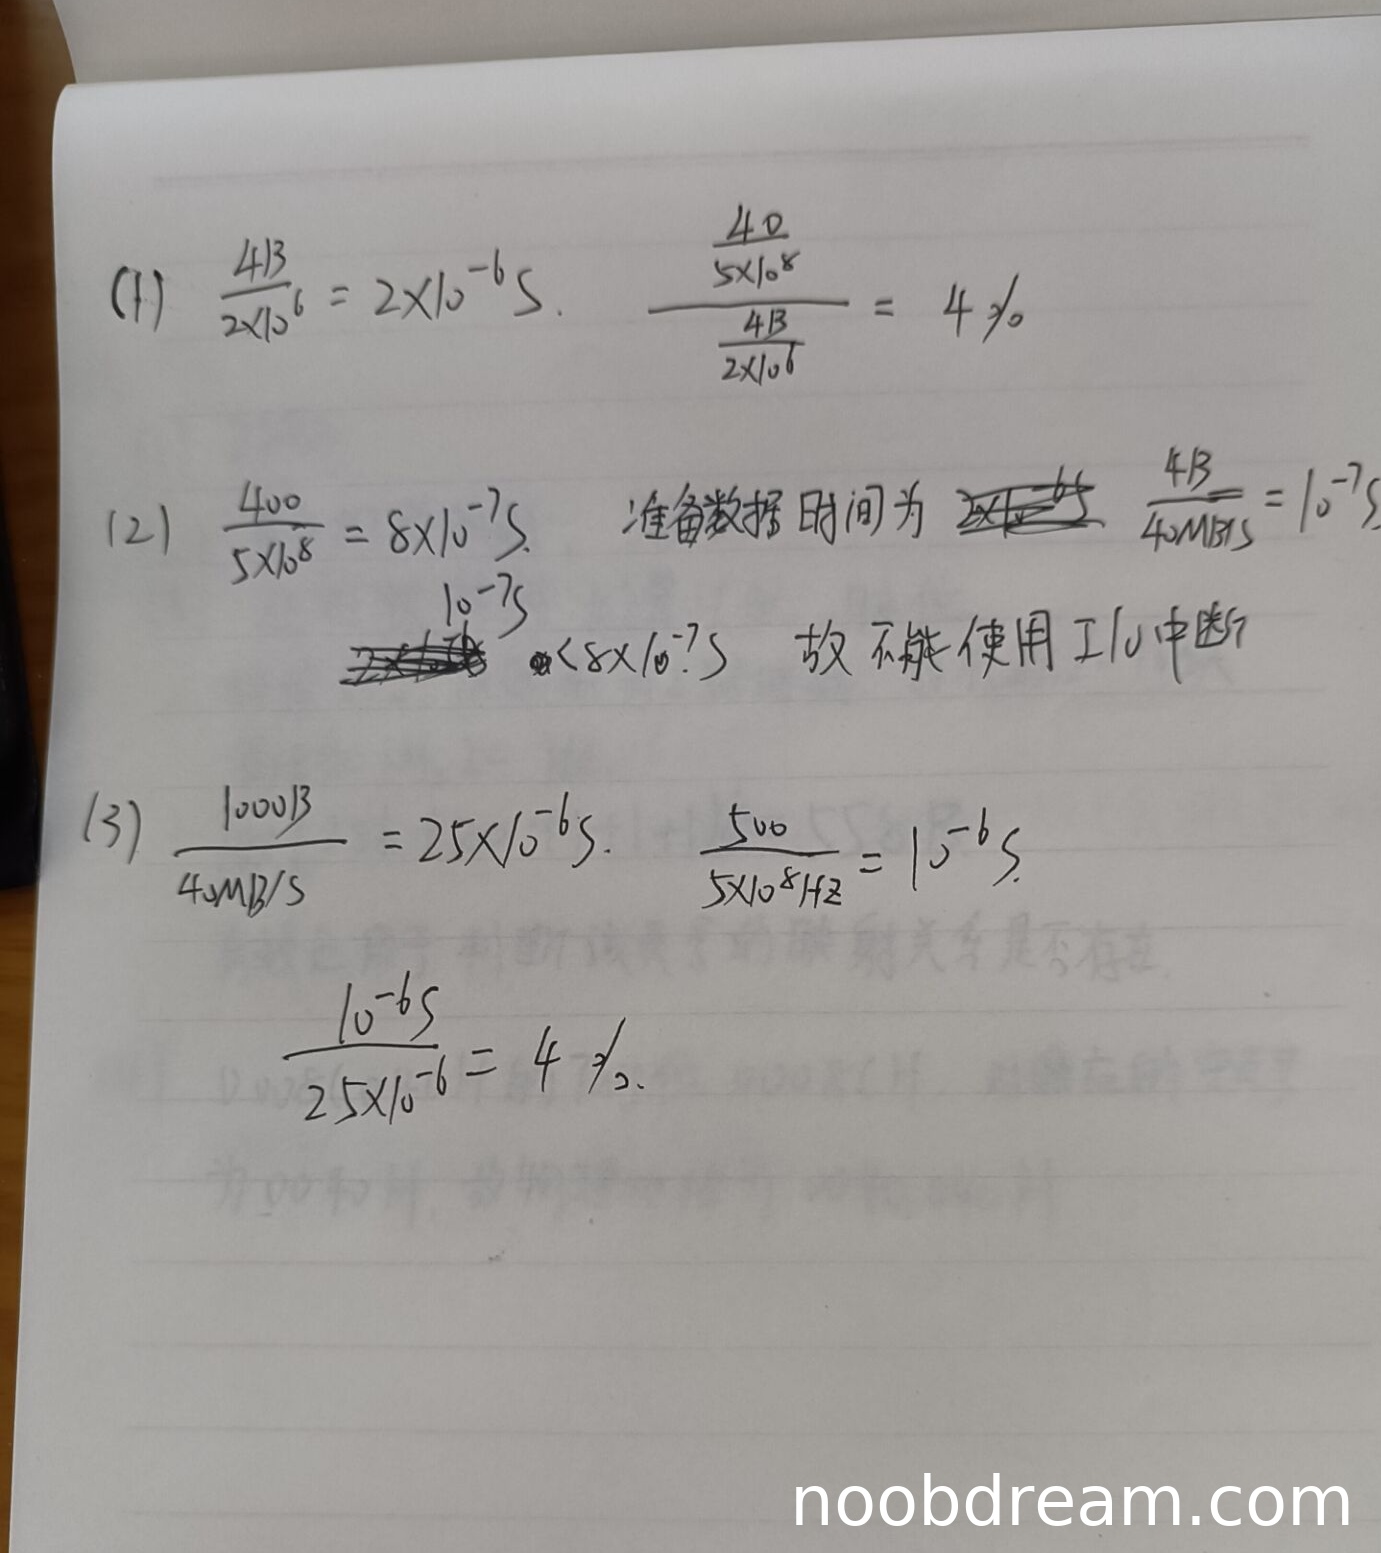 (1) 4B/2×10⁶ = 2×10⁻⁶S. (40/5×10⁸)/(4B/2×10⁶) = 4%
(2) 400/5×10⁸ = 8×10⁻⁷S. 准备数据时间为 4B/40MB/S = 10⁻⁷S
10⁻⁷S < 8×10⁻⁷S 故不能使用I/O中断
(3) 1000B/40MB/S = 25×10⁻⁶S. 500/5×10⁸HZ = 10⁻⁶S.
10⁻⁶S/25×10⁻⁶ = 4%.
noobdream.com